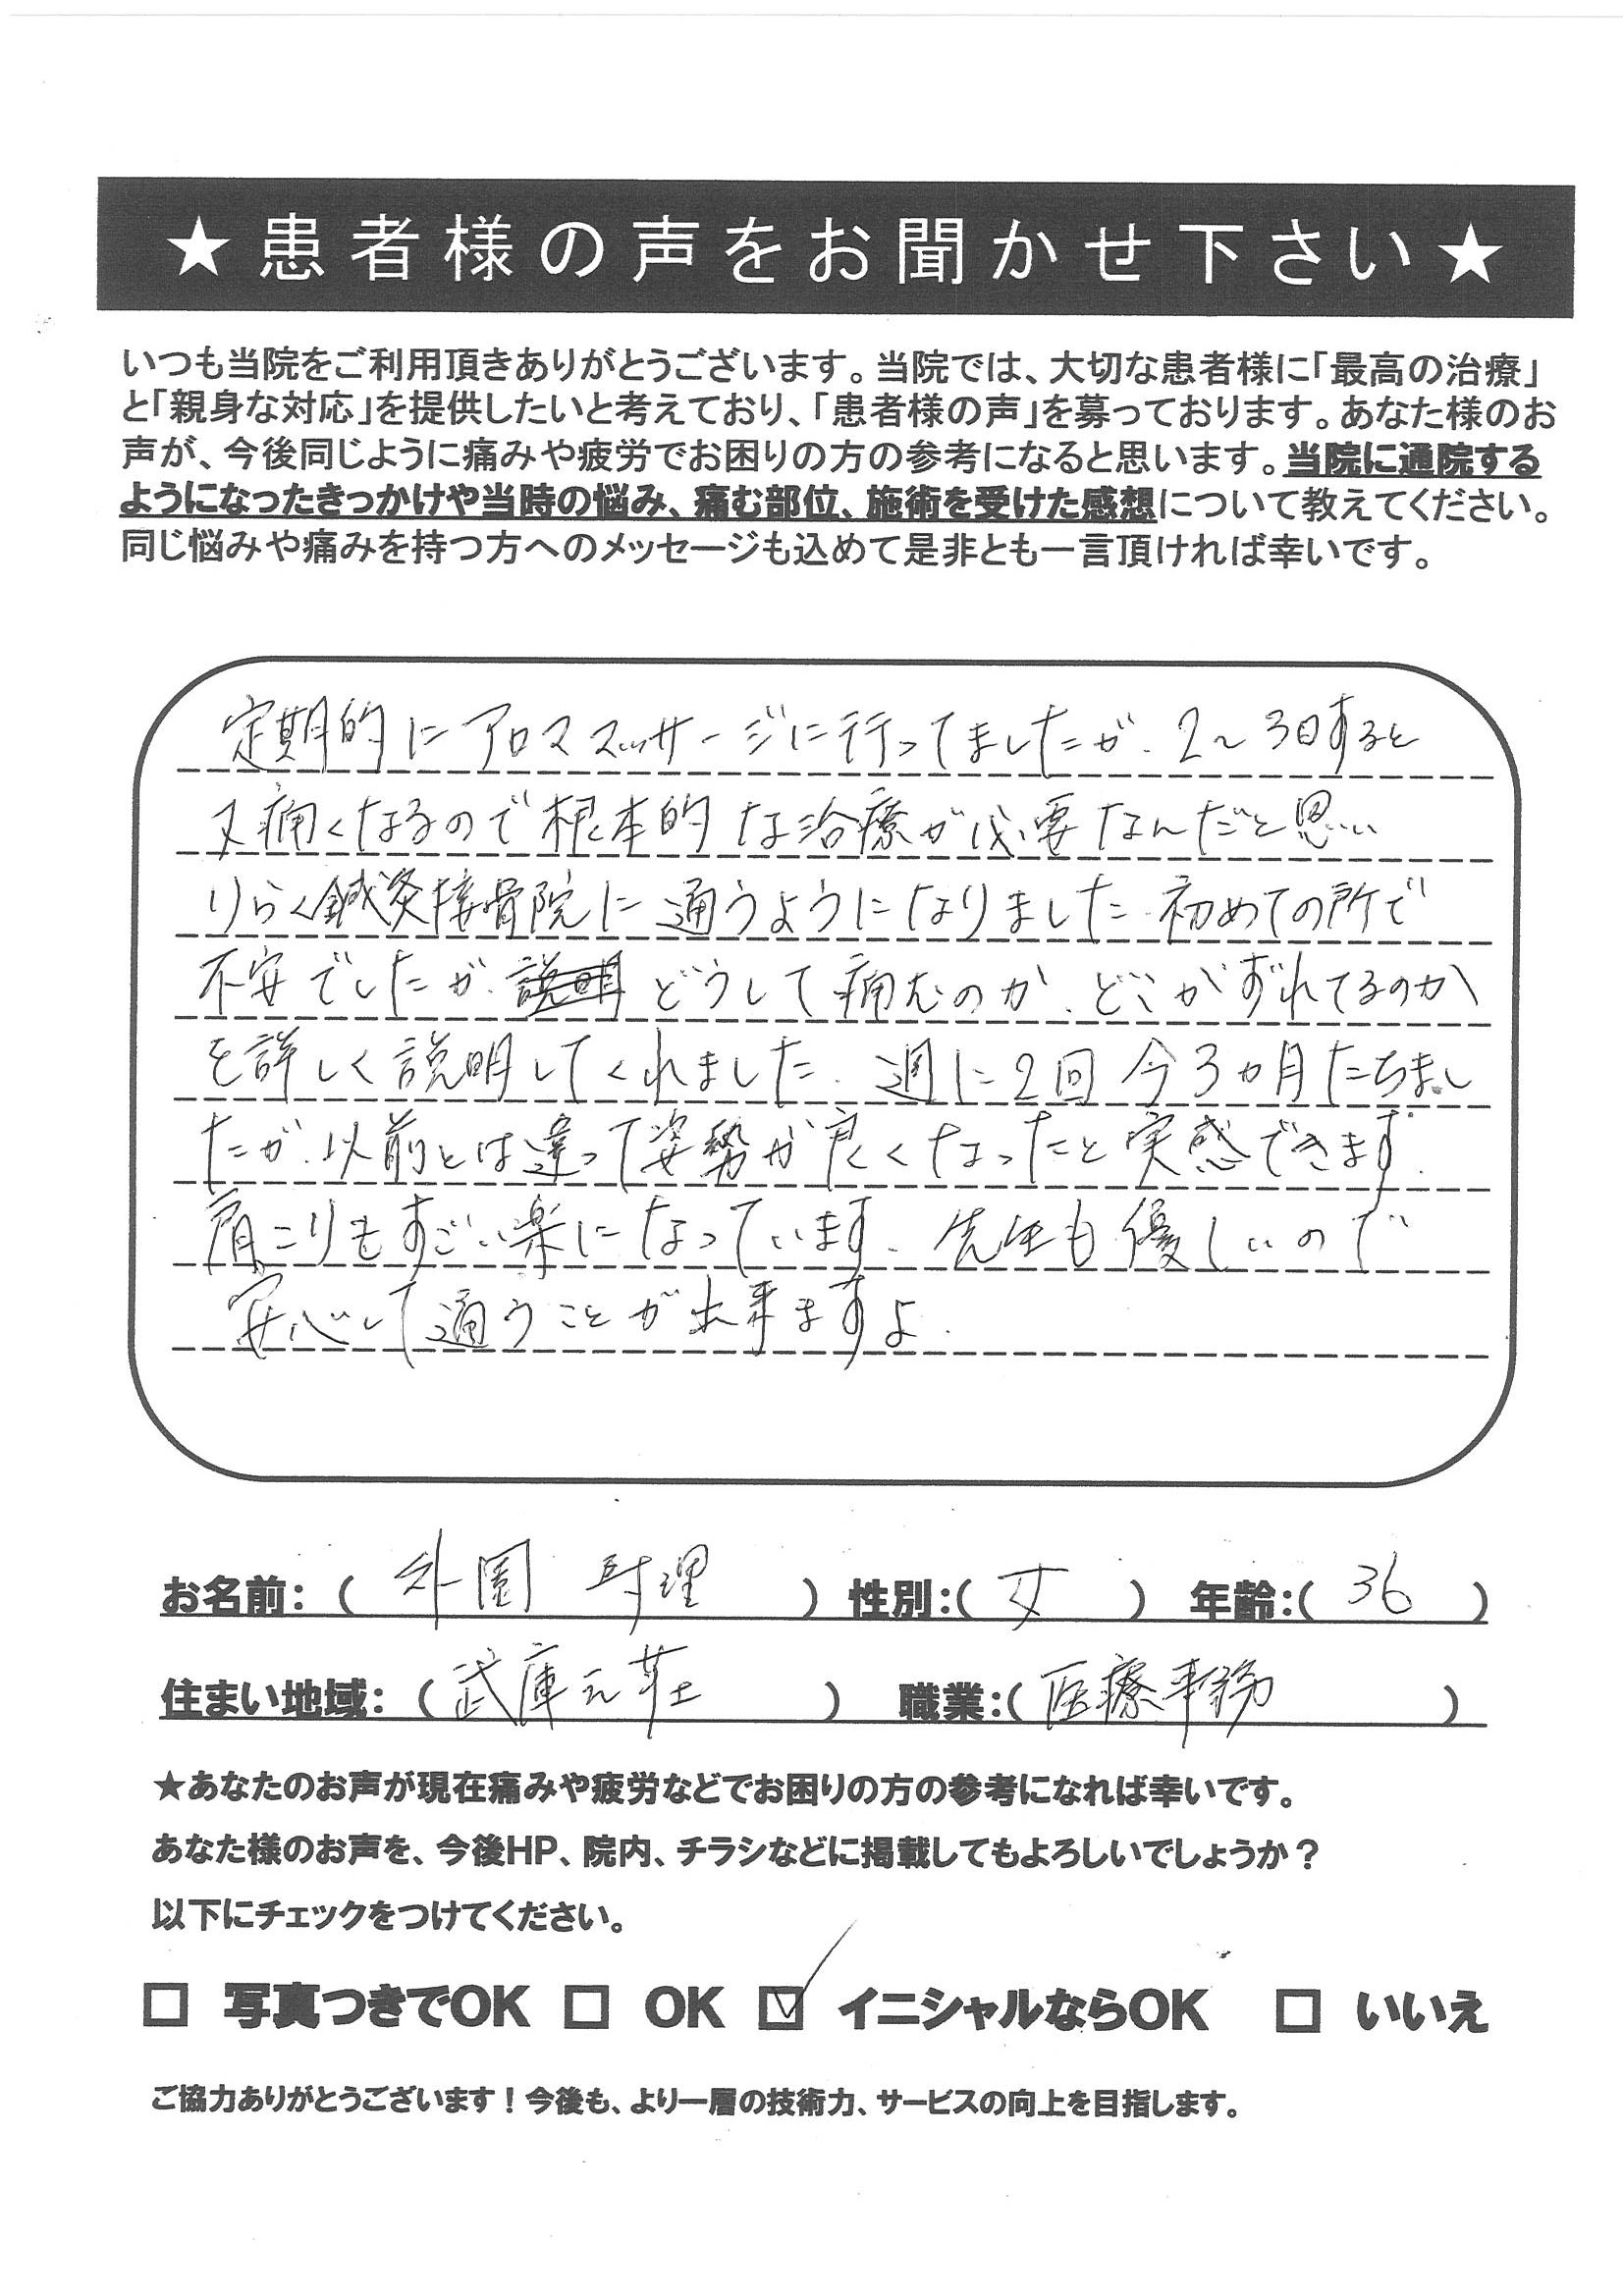 ★患者様の声をお聞かせ下さい★
いつも当院をご利用頂きありがとうございます。当院では、大切な患者様に「最高の治療」
と「親身な対応」を提供したいと考えており、「患者様の声」を募っております。あなた様のお
声が、今後同じように痛みや疲労でお困りの方の参考になると思います。当院に通院する
ようになったきっかけや当時の悩み、痛む部位、施術を受けた感想について教えてください。
同じ悩みや痛みを持つ方へのメッセージも込めて是非とも一言頂ければ幸いです。
定期的にアロママッサージに行ってましたが、2～3日すると
又痛くなるので根本的な治療が必要なんだと思い
りらく鍼灸接骨院に通うようになりました。初めての所で
不安でしたが、説明どうして痛むのか、どこがずれてるのか
を詳しく説明してくれました。週に2回 今3ヵ月たちまし
たが、以前とは違って姿勢が良くなったと実感できます。
肩こりもすごい楽になっています。先生も優しいので
安心して通うことが出来ますよ。
お名前：（ 外園 理 ） 性別：（ 女 ） 年齢：（ 36 ）
住まい地域：（ 武庫元荘 ） 職業：（ 医療事務 ）
★あなたのお声が現在痛みや疲労などでお困りの方の参考になれば幸いです。
あなた様のお声を、今後HP、院内、チラシなどに掲載してもよろしいでしょうか？
以下にチェックをつけてください。
□ 写真つきでOK □ OK ☑ イニシャルならOK □ いいえ
ご協力ありがとうございます！今後も、より一層の技術力、サービスの向上を目指します。